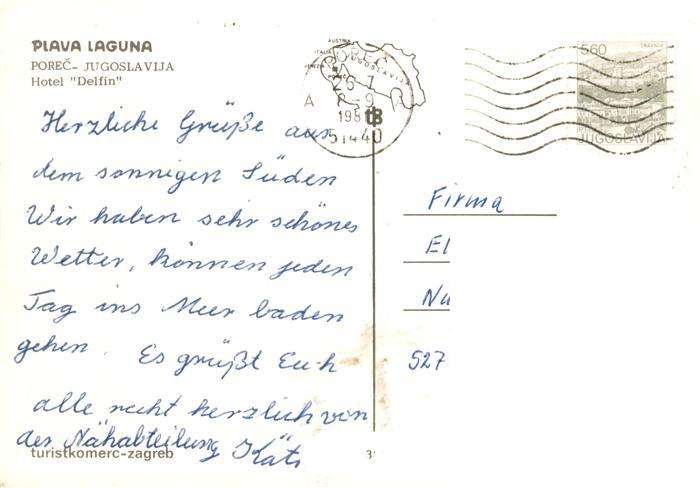 PLAVA LAGUNA
POREČ- JUGOSLAVIJA
Hotel "Delfin"
Herzliche Grüße aus
dem sonnigen Süden
Wir haben sehr schönes
Wetter, können jeden
Tag ins Meer baden
gehen. Es grüßt Euch
alle recht herzlich von
der Nähabteilung
turistkomerc-zagreb
AUSTRIA
ITALIA
JUGOSLAVIJA
POREČ
26-7
198
51440
5,60
JUGOSLAVIJA
Firma
El
Nu
527